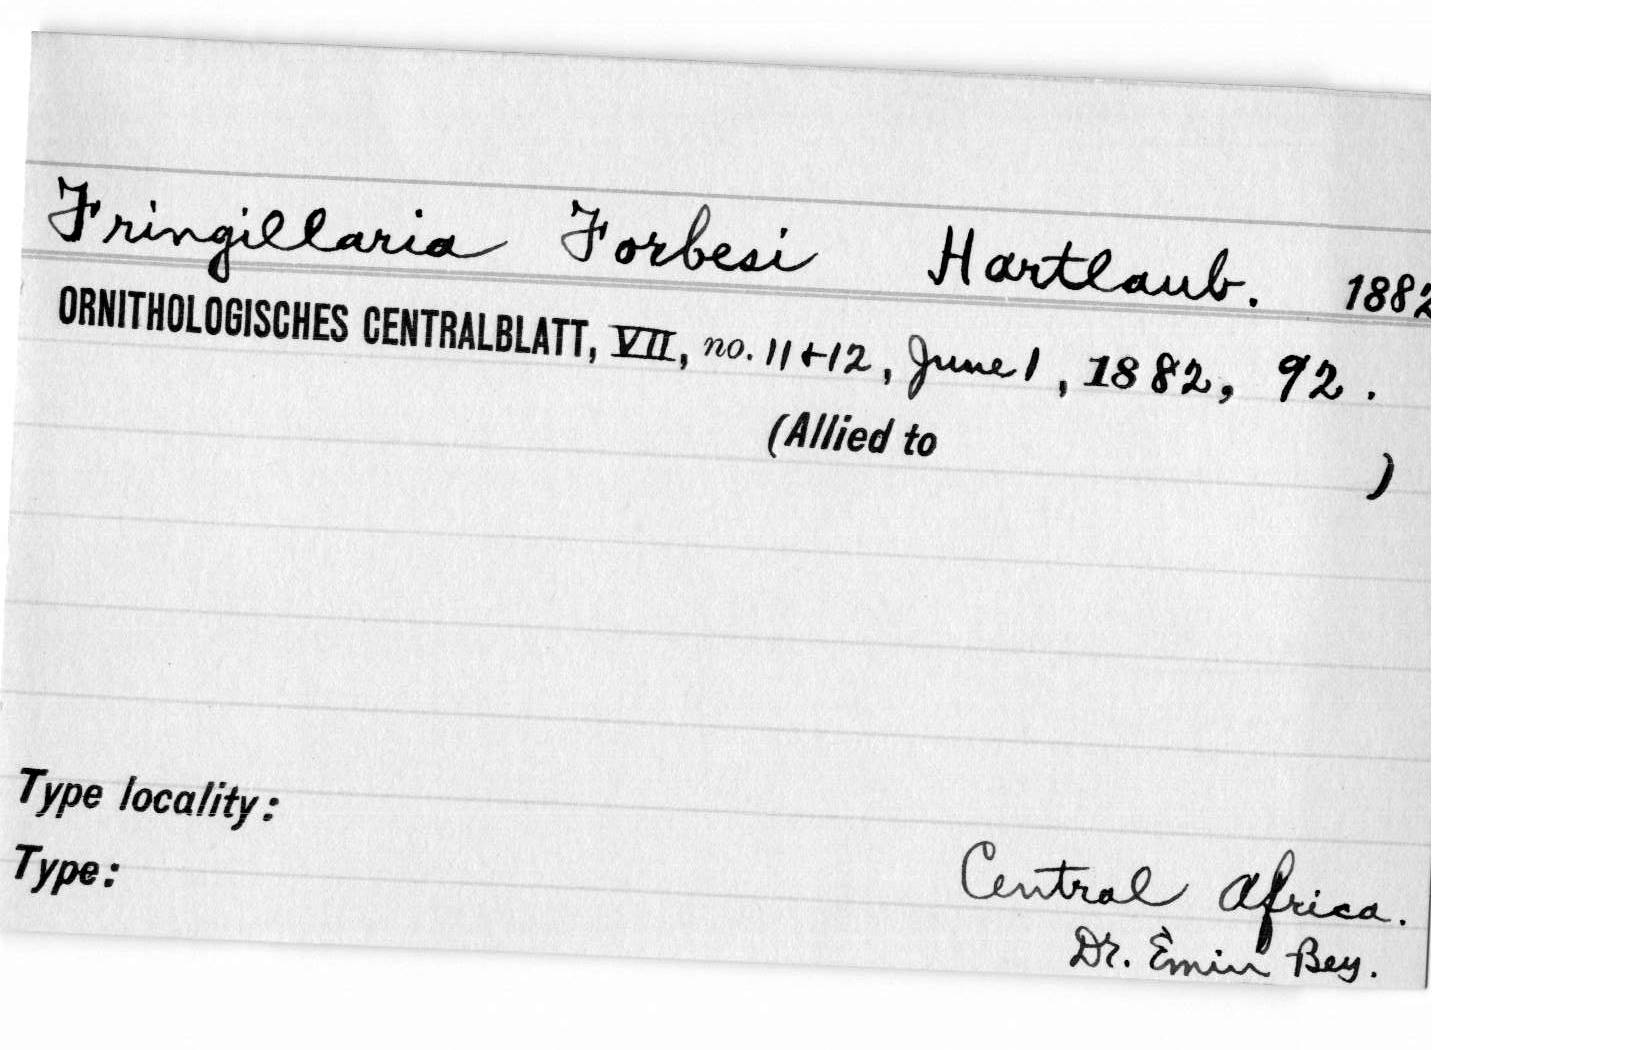 Fringillaria Forbesi Hartlaub. 1882
ORNITHOLOGISCHES CENTRALBLATT, VII, no. 11+12, June 1, 1882, 92.
(Allied to )
Type locality:
Type:
Central Africa.
Dr. Emin Bey.